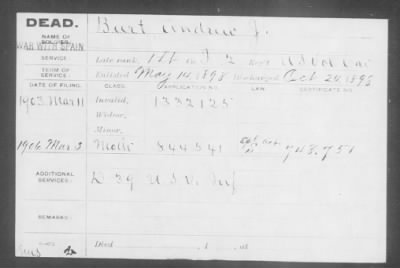 DEAD.
Burt Andrew J.
NAME OF SOLDIER:
WAR WITH SPAIN
SERVICE:
Late rank, 1 Lt Co. I, 2 Reg't U S Vol Cav
TERM OF SERVICE:
Enlisted May 14, 1898 Discharged Oct 24, 1898
DATE OF FILING. CLASS. APPLICATION NO. LAW. CERTIFICATE NO.
1903 Mar 11 Invalid, 1332125
Widow,
Minor,
1906 Mar 3 844541 748.751
ADDITIONAL SERVICES:
D 39 U.S.V. Inf
REMARKS:
Died , 1 , at